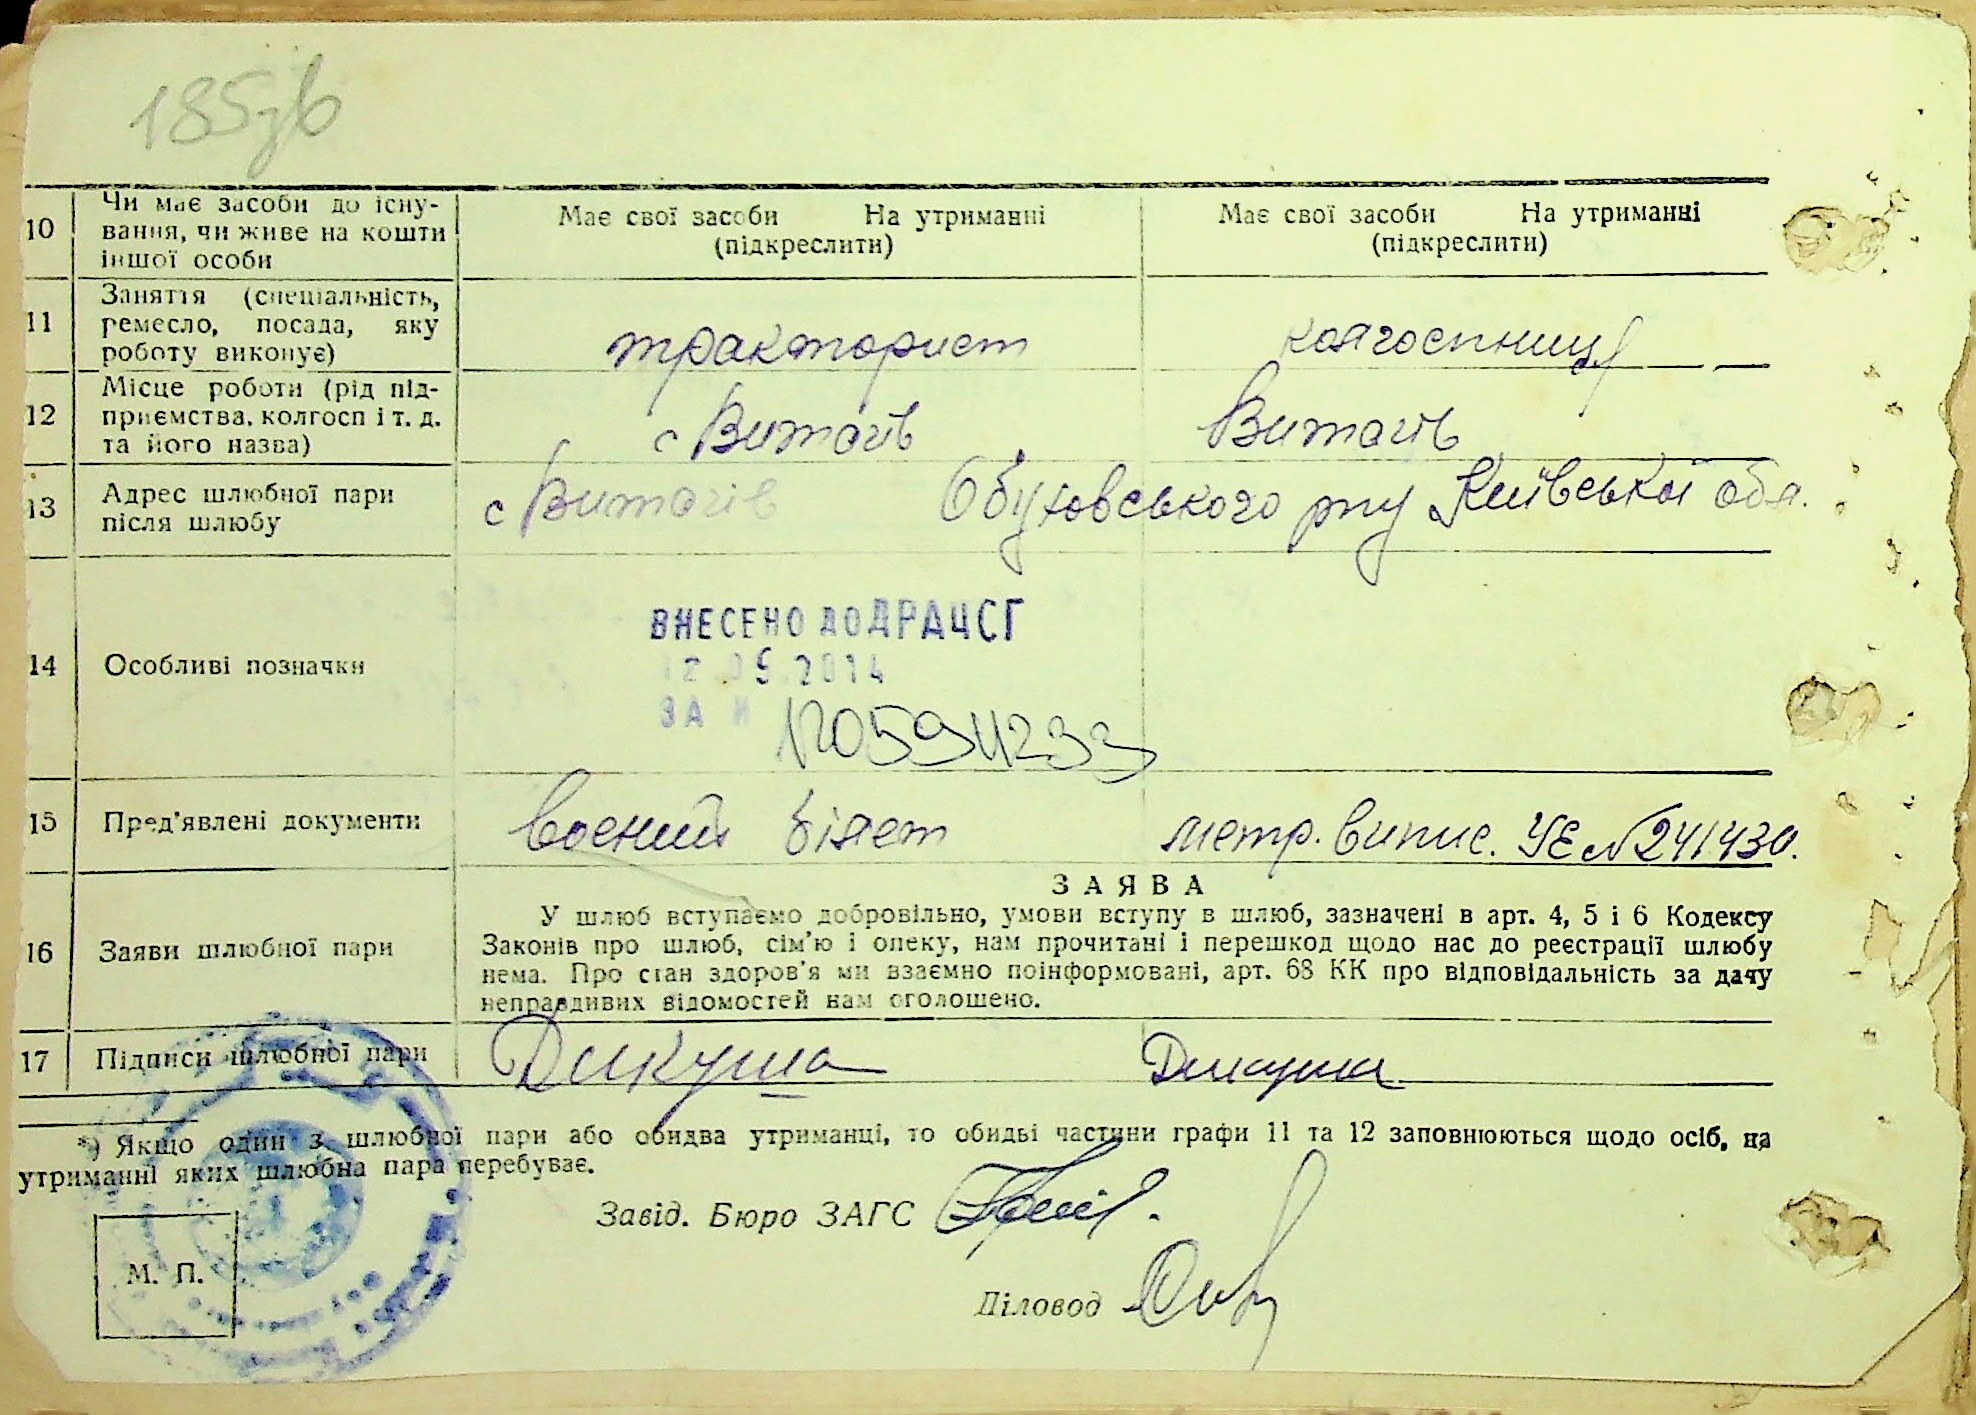 185зв
10 Чи має засоби до існу- Має свої засоби На утриманні Має свої засоби На утриманні
вання, чи живе на кошти (підкреслити) (підкреслити)
іншої особи
11 Заняття (спеціальність,
ремесло, посада, яку тракторист колгоспниця
роботу виконує)
12 Місце роботи (рід під-
приємства, колгосп і т. д. с Витачів Витачів
та його назва)
13 Адрес шлюбної пари с Витачів Обуховського р-ну Київської обл.
після шлюбу
ВНЕСЕНО ДО ДРАЦСГ
14 Особливі позначки 12.05.2014
ЗА №
15 Пред'явлені документи Воєний білет метр. випис. УЕ №241430.
ЗАЯВА
У шлюб вступаємо добровільно, умови вступу в шлюб, зазначені в арт. 4, 5 і 6 Кодексу
16 Заяви шлюбної пари Законів про шлюб, сім'ю і опеку, нам прочитані і перешкод щодо нас до реєстрації шлюбу
нема. Про стан здоров'я ми взаємно поінформовані, арт. 68 КК про відповідальність за дачу
неправдивих відомостей нам оголошено.
17 Підписи шлюбної пари Дикуша Дикуша
*) Якщо один з шлюбної пари або обидва утриманці, то обидві частини графи 11 та 12 заповнюються щодо осіб, на
утриманні яких шлюбна пара перебуває.
Завід. Бюро ЗАГС
М. П.
Діловод